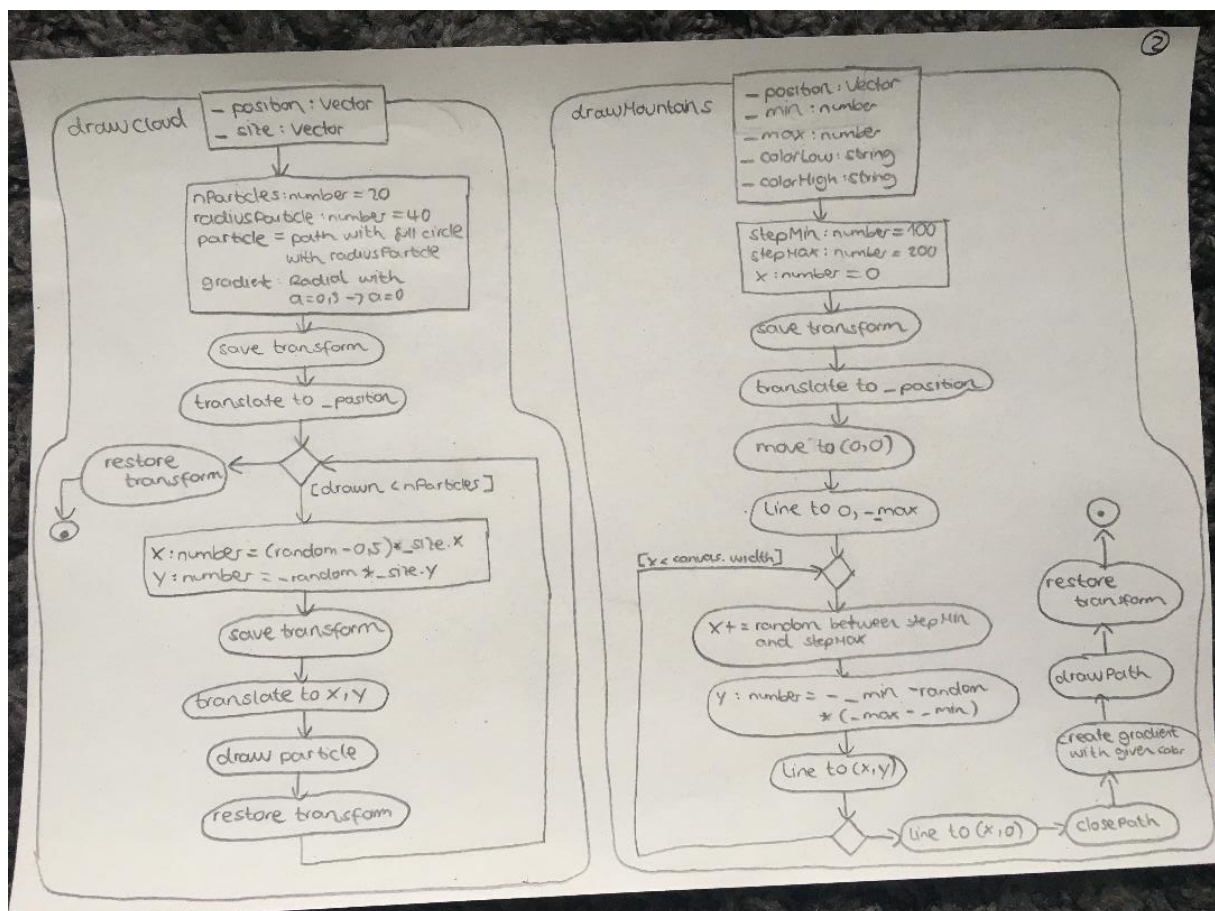 2
drawCloud
_position: Vector
_size: Vector
nParticles: number = 20
radiusParticle: number = 40
particle = path with full circle
with radiusParticle
gradiet: Radial with
a=0,5 -> a=0
save transform
translate to _position
restore
transform
[drawn < nParticles]
X: number = (random - 0,5) * _size.X
Y: number = _random * _size.y
save transform
translate to X, Y
draw particle
restore transform
drawMountans
_position: Vector
_min: number
_max: number
_colorLow: string
_colorHigh: string
stepMin: number = 100
stepMax: number = 200
X: number = 0
save transform
translate to _position
move to (0,0)
Line to 0, -_max
[x < canvas.width]
X += random between stepMin
and stepMax
Y: number = - _min - random
* (_max - _min)
Line to (x,y)
Line to (x,0)
closePath
create gradient
with given color
drawPath
restore
transform